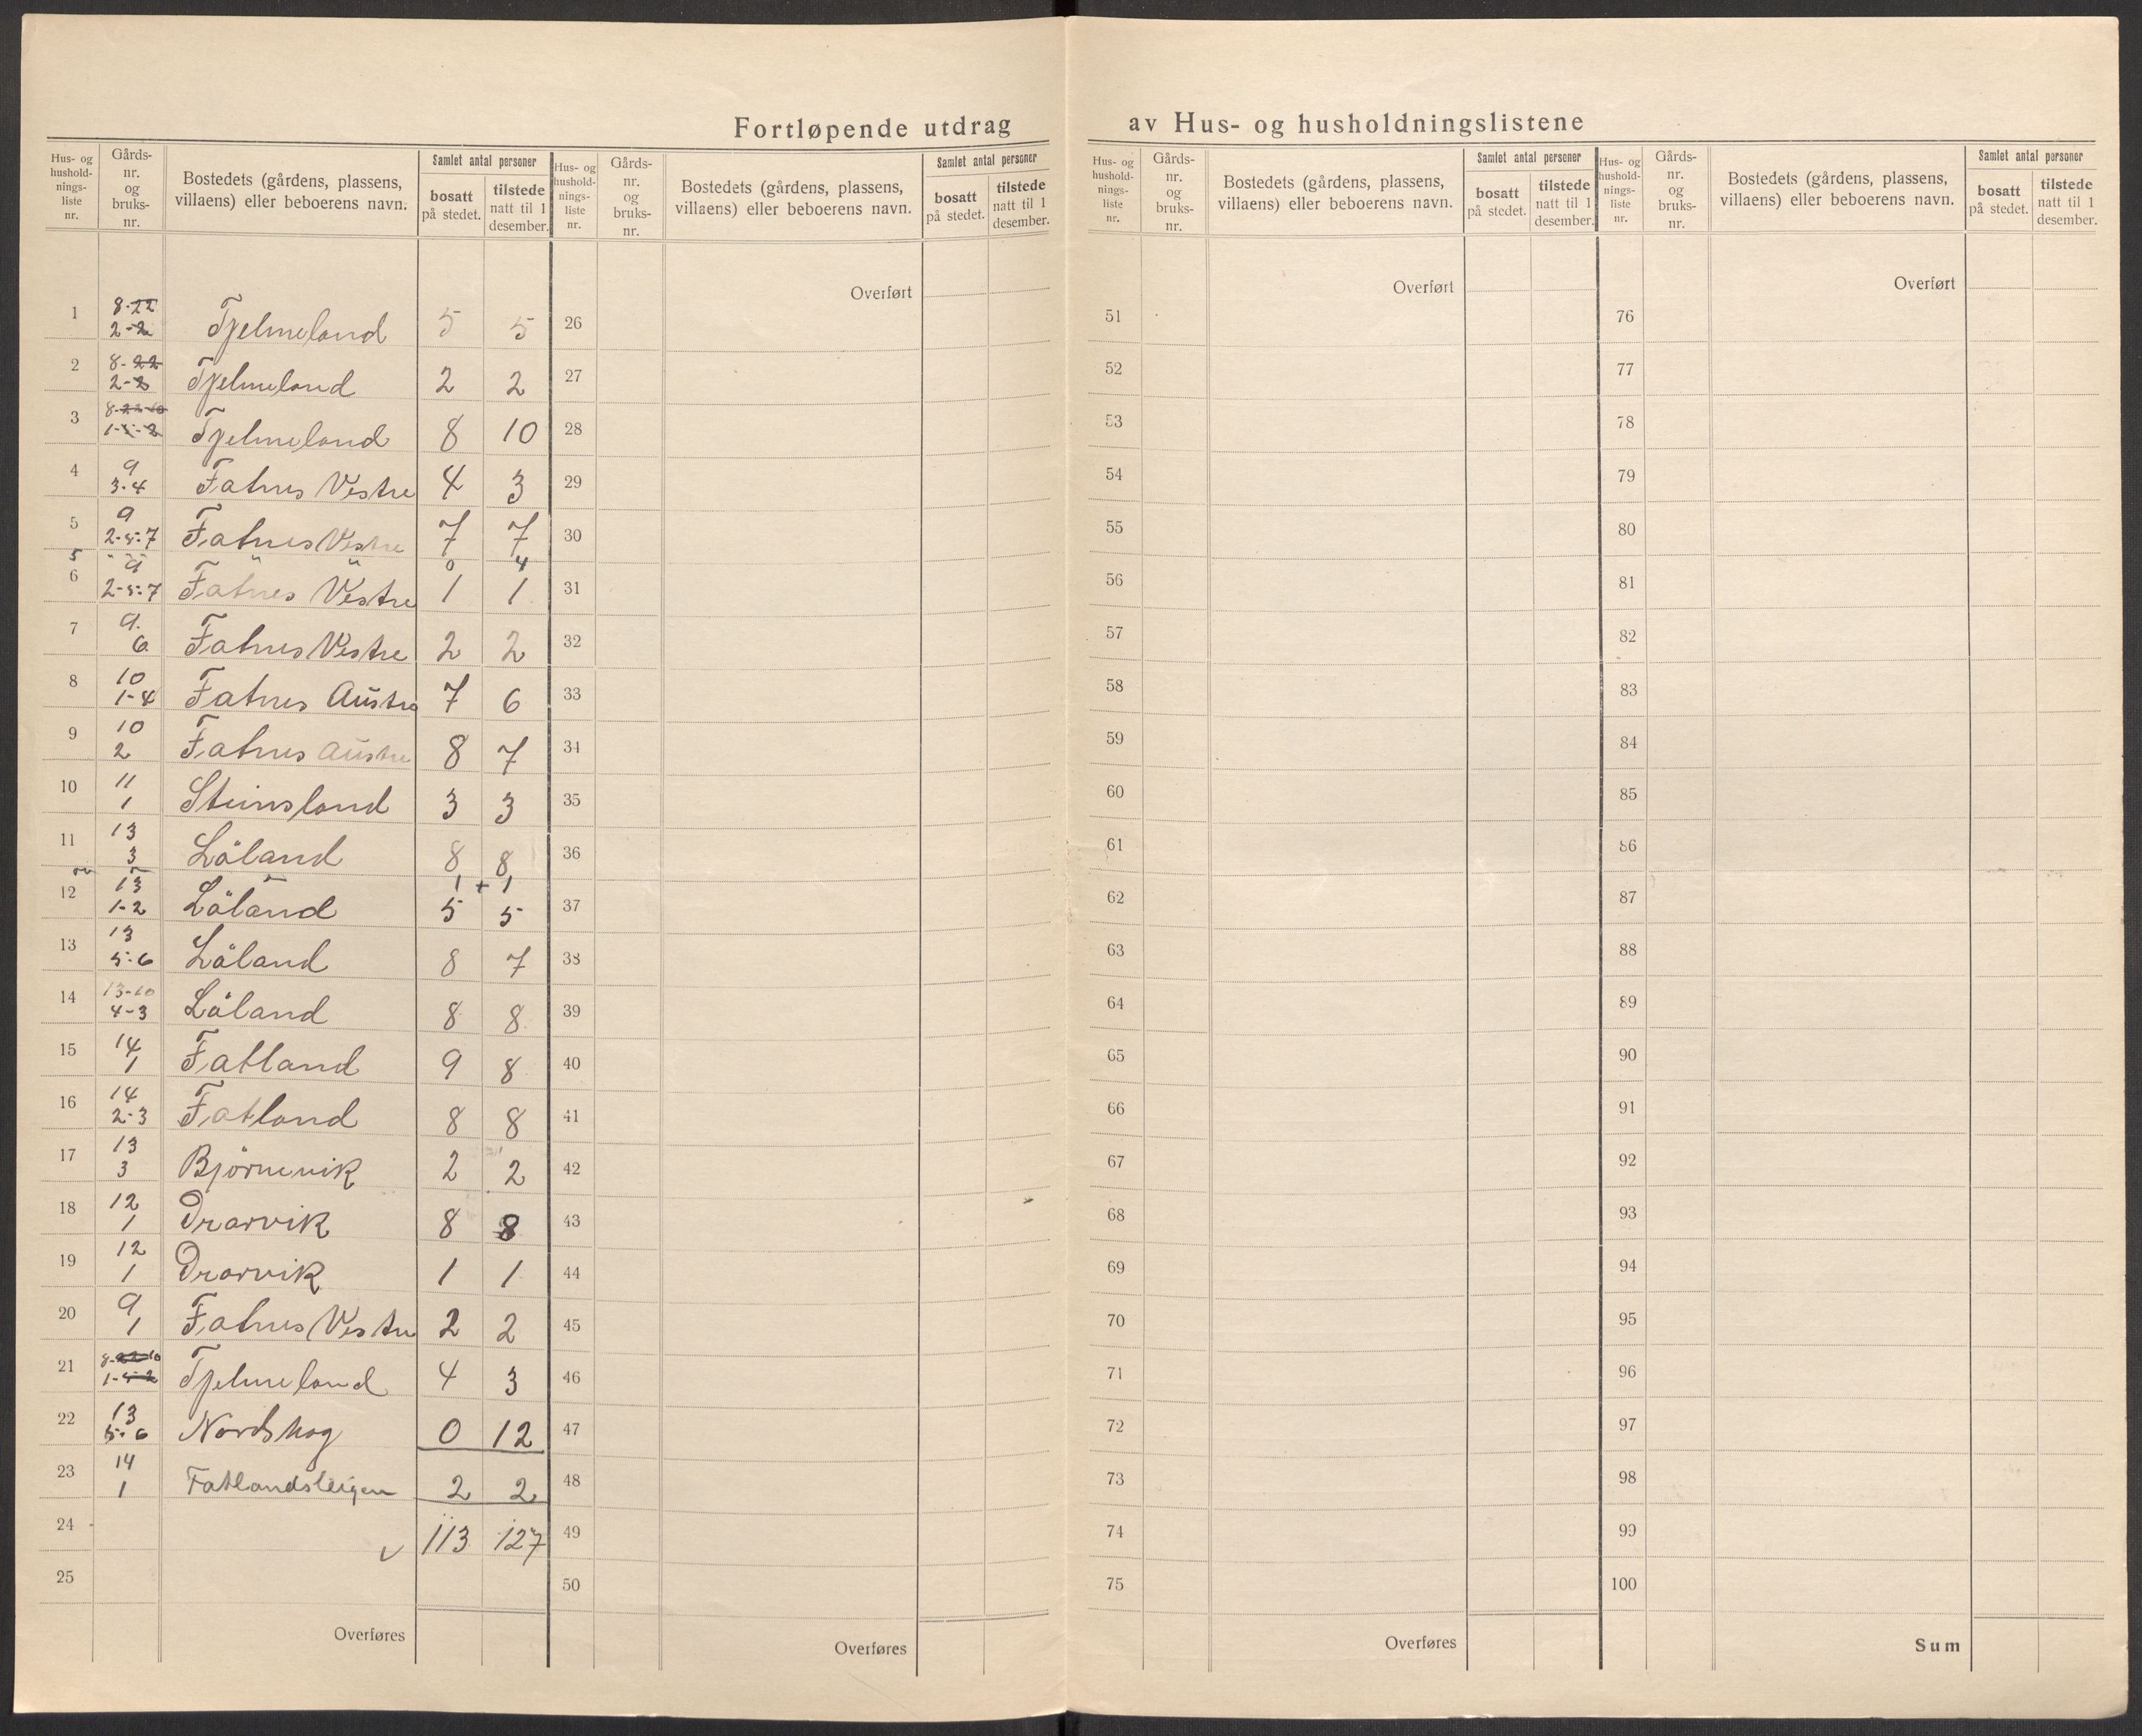 Fortløpende utdrag av Hus- og husholdningslistene
Hus- og husholdnings-liste nr. Gårds-nr. og bruks-nr. Bostedets (gårdens, plassens, villaens) eller beboerens navn. Samlet antal personer bosatt på stedet. tilstede natt til 1 desember.
Hus- og husholdnings-liste nr. Gårds-nr. og bruks-nr. Bostedets (gårdens, plassens, villaens) eller beboerens navn. Samlet antal personer bosatt på stedet. tilstede natt til 1 desember.
Hus- og husholdnings-liste nr. Gårds-nr. og bruks-nr. Bostedets (gårdens, plassens, villaens) eller beboerens navn. Samlet antal personer bosatt på stedet. tilstede natt til 1 desember.
Hus- og husholdnings-liste nr. Gårds-nr. og bruks-nr. Bostedets (gårdens, plassens, villaens) eller beboerens navn. Samlet antal personer bosatt på stedet. tilstede natt til 1 desember.
Overført Overført Overført
1 8-22 2-2 Tjelmeland 5 5 26 51 76
2 8-22 2-3 Tjelmeland 2 2 27 52 77
3 8-22-10 1-5-2 Tjelmeland 8 10 28 53 78
4 9 3-4 Fatnes Vestre 4 3 29 54 79
5 9 2-5-7 Fatnes Vestre 7 7 30 55 80
5 " " " " 0 4
6 9 2-5-7 Fatnes Vestre 1 1 31 56 81
7 9 6 Fatnes Vestre 2 2 32 57 82
8 10 1-4 Fatnes Austre 7 6 33 58 83
9 10 2 Fatnes Austre 8 7 34 59 84
10 11 1 Steinsland 3 3 35 60 85
11 13 3 Låland 8 8 36 61 86
1 + 1
12 13 1-2 Låland 5 5 37 62 87
13 13 5-6 Låland 8 7 38 63 88
14 13-10 4-3 Låland 8 8 39 64 89
15 14 1 Fatland 9 8 40 65 90
16 14 2-3 Fatland 8 8 41 66 91
17 13 3 Björnevik 2 2 42 67 92
18 12 1 Drarvik 8 8 43 68 93
19 12 1 Drarvik 1 1 44 69 94
20 9 1 Fatnes Vestre 2 2 45 70 95
21 8-22-10 1-5-2 Tjelmeland 4 3 46 71 96
22 13 5-6 Nordskog 0 12 47 72 97
23 14 1 Fatlandsleigen 2 2 48 73 98
24 113 127 49 74 99
25 50 75 100
Overføres Overføres Overføres Sum